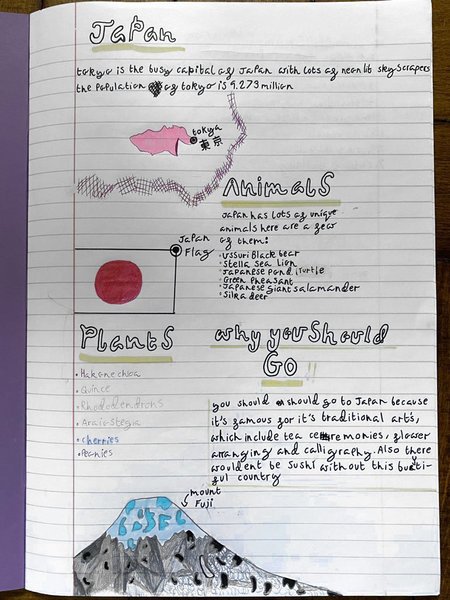 Japan
tokyo is the busy capital of Japan with lots of neon lit skyscrapers
the population of tokyo is 9.273 million
tokyo
東京
Animals
Japan has lots of unique
animals here are a few
of them:
• Ussuri Black bear
• Stella sea Lion
• Japanese Pond Turtle
• Green Pheasant
• Japanese Giant salamander
• Sika deer
Japan
Flag
Plants
• Hakonechloa
• Quince
• Rhododendrons
• cherries
• Peonies
why you Should
Go !!
you should should go to Japan because
it's famous for it's traditional arts,
which include tea ceremonies, flower
arranging and calligraphy. Also there
wouldent be sushi without this buti-
ful country
mount
Fuji